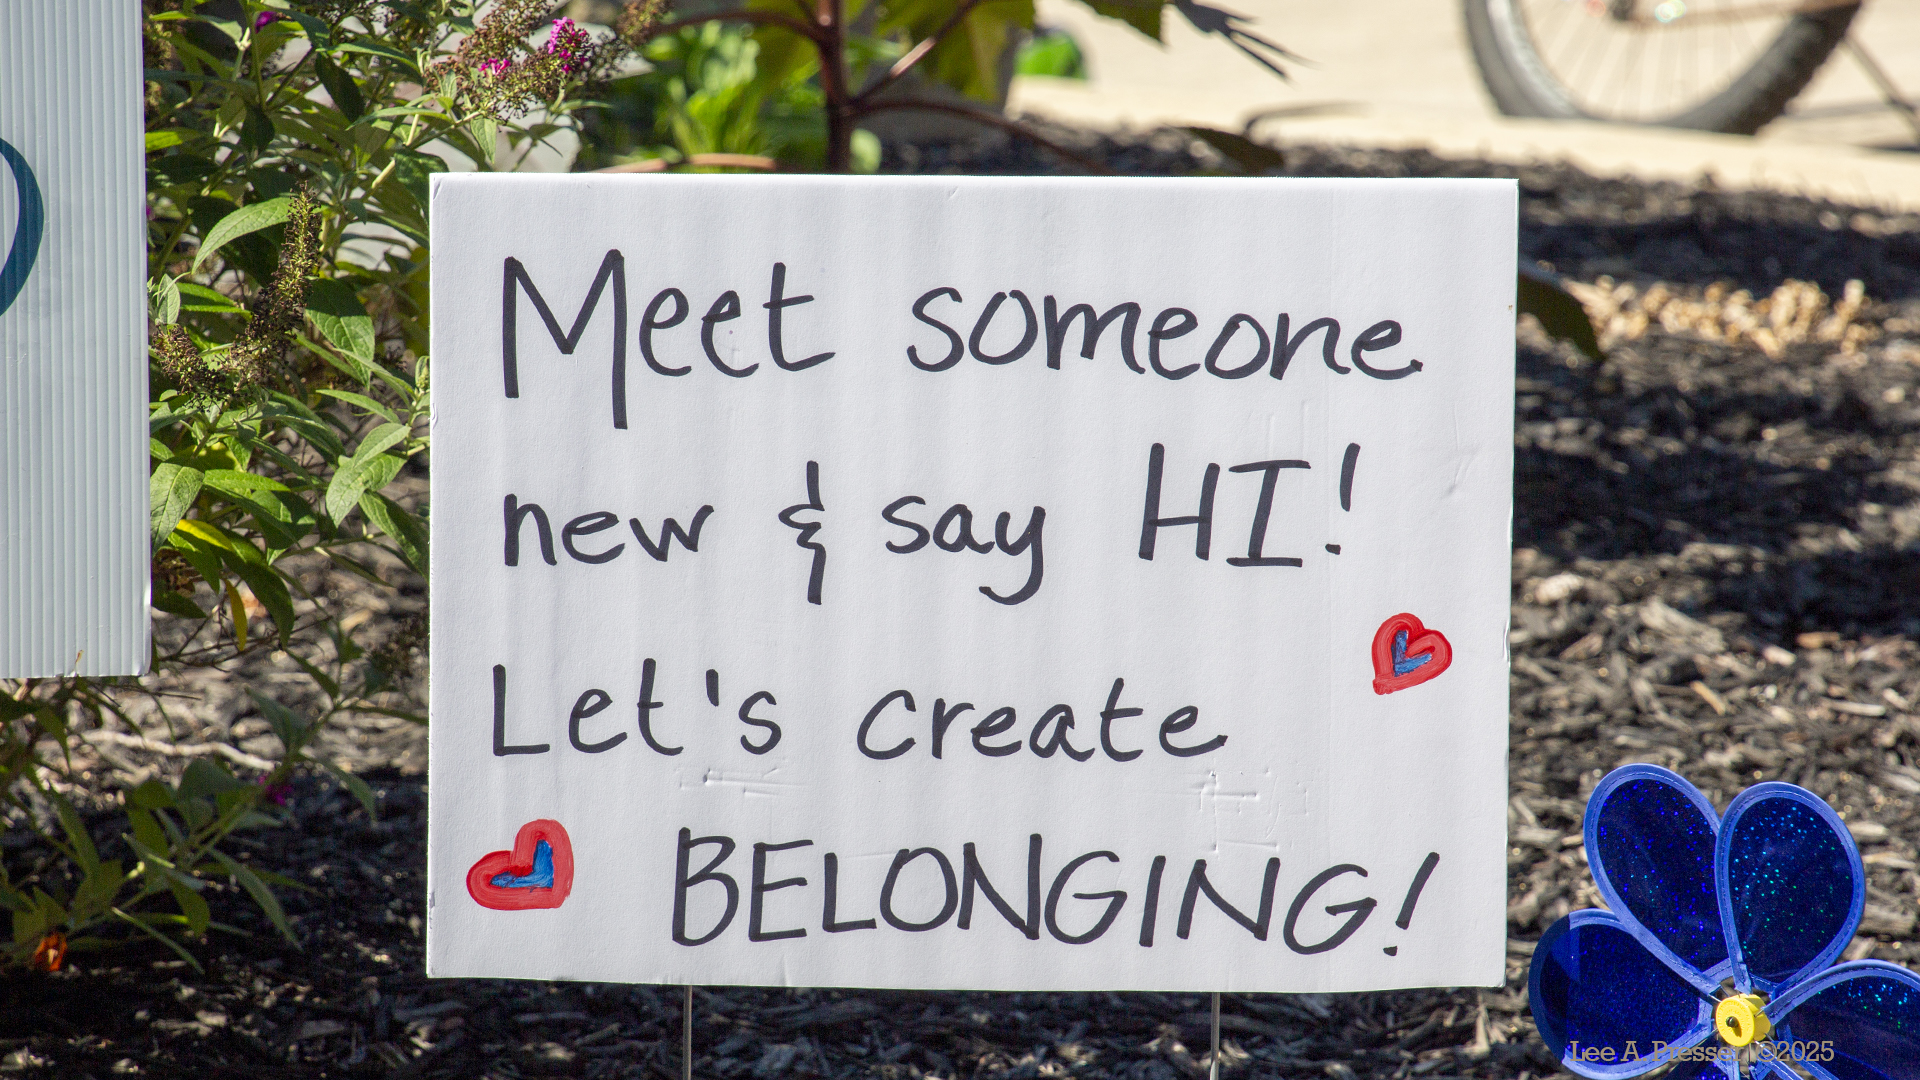 Meet someone
new & say HI!
Let's create
BELONGING!
Lee A Presser ©2025